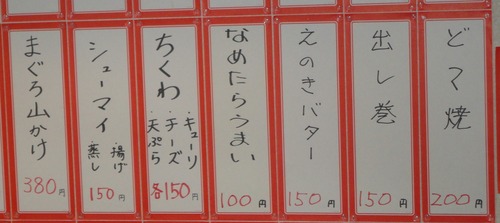 どて焼
200円
出し巻
150円
えのきバター
150円
なめたらうまい
100円
ちくわ
・キューリ
・チーズ
・天ぷら
各150円
シューマイ
・揚げ
・蒸し
150円
まぐろ山かけ
380円